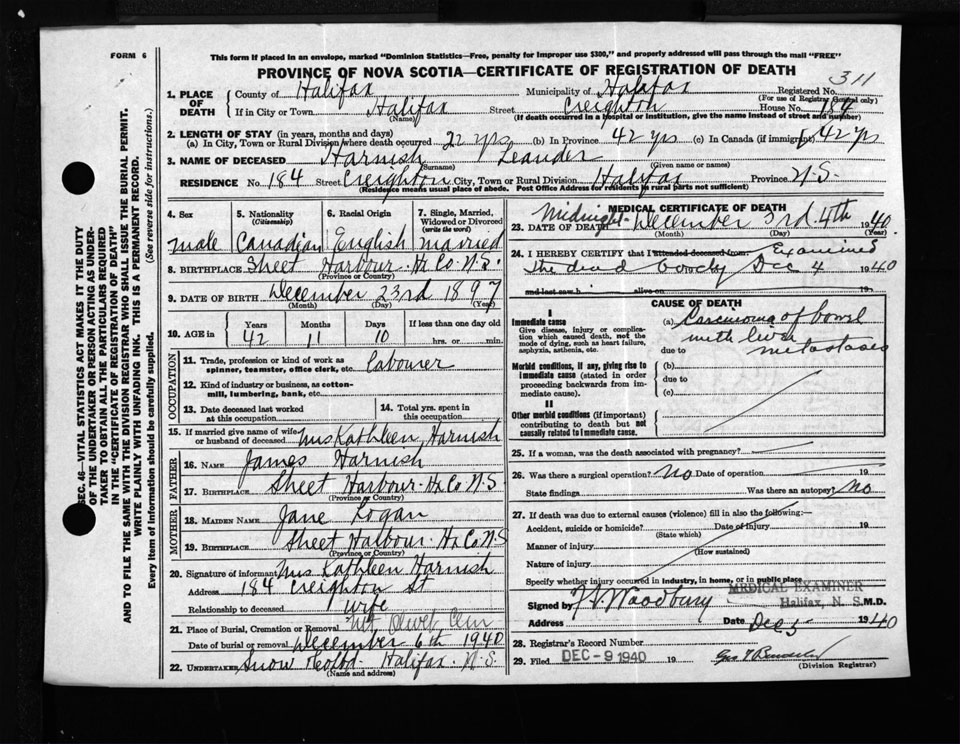 FORM 6
This form if placed in an envelope, marked "Dominion Statistics—Free, penalty for improper use $300," and properly addressed will pass through the mail "FREE"
PROVINCE OF NOVA SCOTIA—CERTIFICATE OF REGISTRATION OF DEATH
311
1. PLACE OF DEATH
County of Halifax Municipality of Halifax Registered No.
(For use of Registrar General only)
If in City or Town Halifax Street Creighton House No. 184
(Name) (If death occurred in a hospital or institution, give name instead of street and number)
2. LENGTH OF STAY (in years, months and days)
(a) In City, Town or Rural Division where death occurred 22 yrs (b) in Province 42 yrs (c) in Canada (if immigrant) 42 yrs
3. NAME OF DECEASED Harnish Leander
(Surname) (Given name or names)
RESIDENCE No. 184 Street Creighton City, Town or Rural Division Halifax Province N.S.
(Residence means usual place of abode. Post Office Address for residents in rural parts not sufficient)
4. Sex
male
5. Nationality (Citizenship)
Canadian
6. Racial Origin
English
7. Single, Married, Widowed or Divorced (write the word)
married
8. BIRTHPLACE Sheet Harbour Hx Co. N.S.
(Province or Country)
9. DATE OF BIRTH December 23rd 1897
(Month) (Day) (Year)
10. AGE in
Years Months Days If less than one day old
42 11 10 hrs. or min.
OCCUPATION
11. Trade, profession or kind of work as spinner, teamster, office clerk, etc. Labourer
12. Kind of industry or business, as cotton-mill, lumbering, bank, etc.
13. Date deceased last worked at this occupation
14. Total yrs. spent in this occupation
15. If married give name of wife or husband of deceased Mrs Kathleen Harnish
FATHER
16. NAME James Harnish
17. BIRTHPLACE Sheet Harbour Hx Co N.S
(Province or Country)
MOTHER
18. MAIDEN NAME Jane Logan
19. BIRTHPLACE Sheet Harbour Hx Co. N.S
(Province or Country)
20. Signature of informant Mrs Kathleen Harnish
Address 184 Creighton St
Relationship to deceased wife
21. Place of Burial, Cremation or Removal Mt Olivet Cem
Date of burial or removal December 6th 1940
22. UNDERTAKER Snow Halifax N.S.
(Name and address)
MEDICAL CERTIFICATE OF DEATH
23. DATE OF DEATH Midnight December 3rd 4th 1940
(Month) (Day) (Year)
24. I HEREBY CERTIFY that I attended deceased from: Examined
the dead body Dec 4 1940
and last saw h alive on 19
CAUSE OF DEATH
I
Immediate cause
Give disease, injury or complication which caused death, not the mode of dying, such as heart failure, asphyxia, asthenia, etc.
(a) Carcinoma of bowel
with liver
due to metastases
Morbid conditions, if any, giving rise to immediate cause (stated in order proceeding backwards from immediate cause)
(b)
due to
(c)
II
Other morbid conditions (if important) contributing to death but not causally related to immediate cause.
25. If a woman, was the death associated with pregnancy?
26. Was there a surgical operation? No Date of operation 19
State findings Was there an autopsy? No
27. If death was due to external causes (violence) fill in also the following:—
Accident, suicide or homicide? Date of injury 19
(State which)
Manner of injury
(How sustained)
Nature of injury
Specify whether injury occurred in industry, in home, or in public place
MEDICAL EXAMINER
Halifax, N. S.
Signed by Woodbury M.D.
Address Date Dec 5 1940
28. Registrar's Record Number
29. Filed DEC - 9 1940 19
(Division Registrar)
SEC. 46—VITAL STATISTICS ACT MAKES IT THE DUTY
OF THE UNDERTAKER OR PERSON ACTING AS UNDER-
TAKER TO OBTAIN ALL THE PARTICULARS REQUIRED
IN THE "CERTIFICATE OF REGISTRATION OF DEATH"
AND TO FILE THE SAME WITH THE DIVISION REGISTRAR WHO SHALL ISSUE THE BURIAL PERMIT.
WRITE PLAINLY WITH UNFADING INK. THIS IS A PERMANENT RECORD.
Every item of information should be carefully supplied. (See reverse side for instructions.)